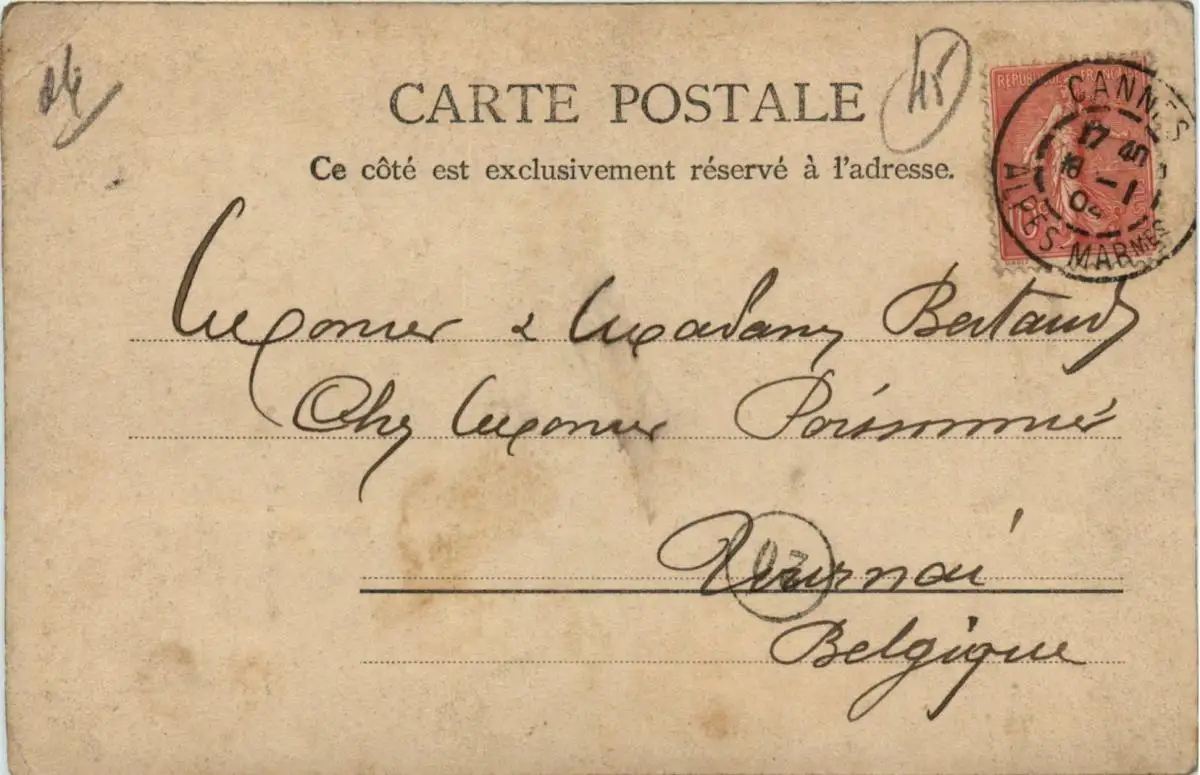 CARTE POSTALE
Ce côté est exclusivement réservé à l'adresse.
45
RÉPUBLIQUE FRANÇAISE
10
CANNES
17 40
18 -1
04
ALPES-MARMES
Monsieur & Madame Bertaud
Chez Monsieur Poissonnié
Tournai
Belgique